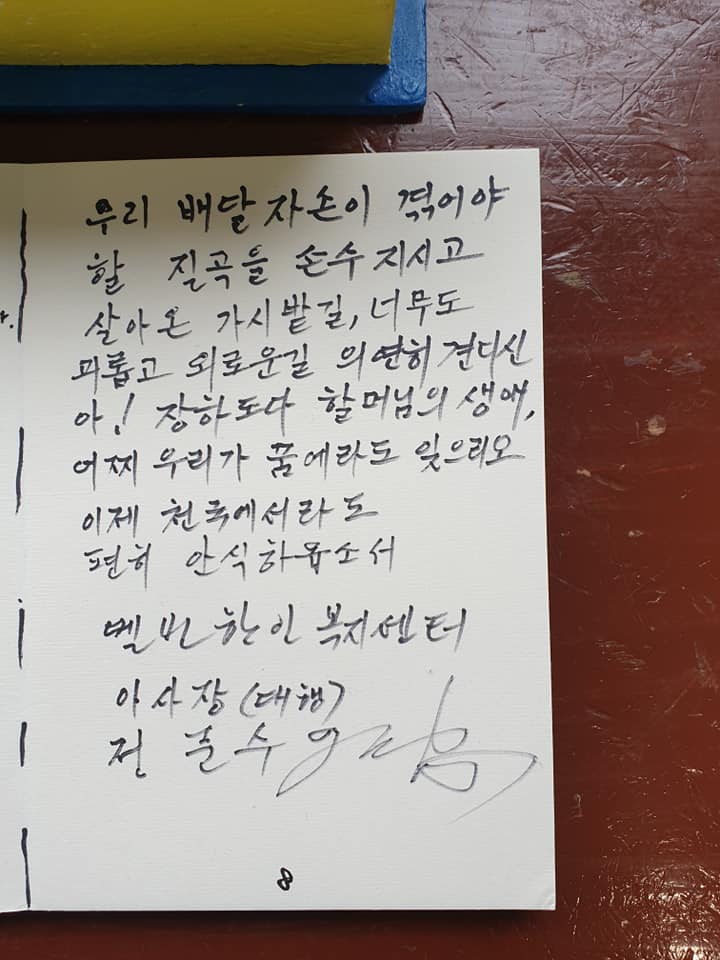 우리 배달 자손이 겪어야
할 질곡을 손수 지시고
살아온 가시밭길, 너무도
괴롭고 외로운길 의연히 견디신
아! 장하도다 할머님의 생애,
어찌 우리가 꿈에라도 잊으리오
이제 천국에서라도
편히 안식하옵소서
멜번 한인 복지센터
이사장 (대행)
전 수
8